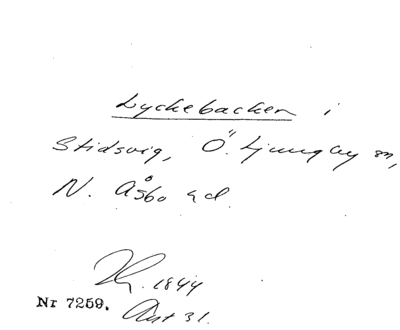 Lyckebacken i
Stidsvig, Ö. Ljungby sn,
N. Åsbo hd.
1844
Nr 7259. Ant 31.